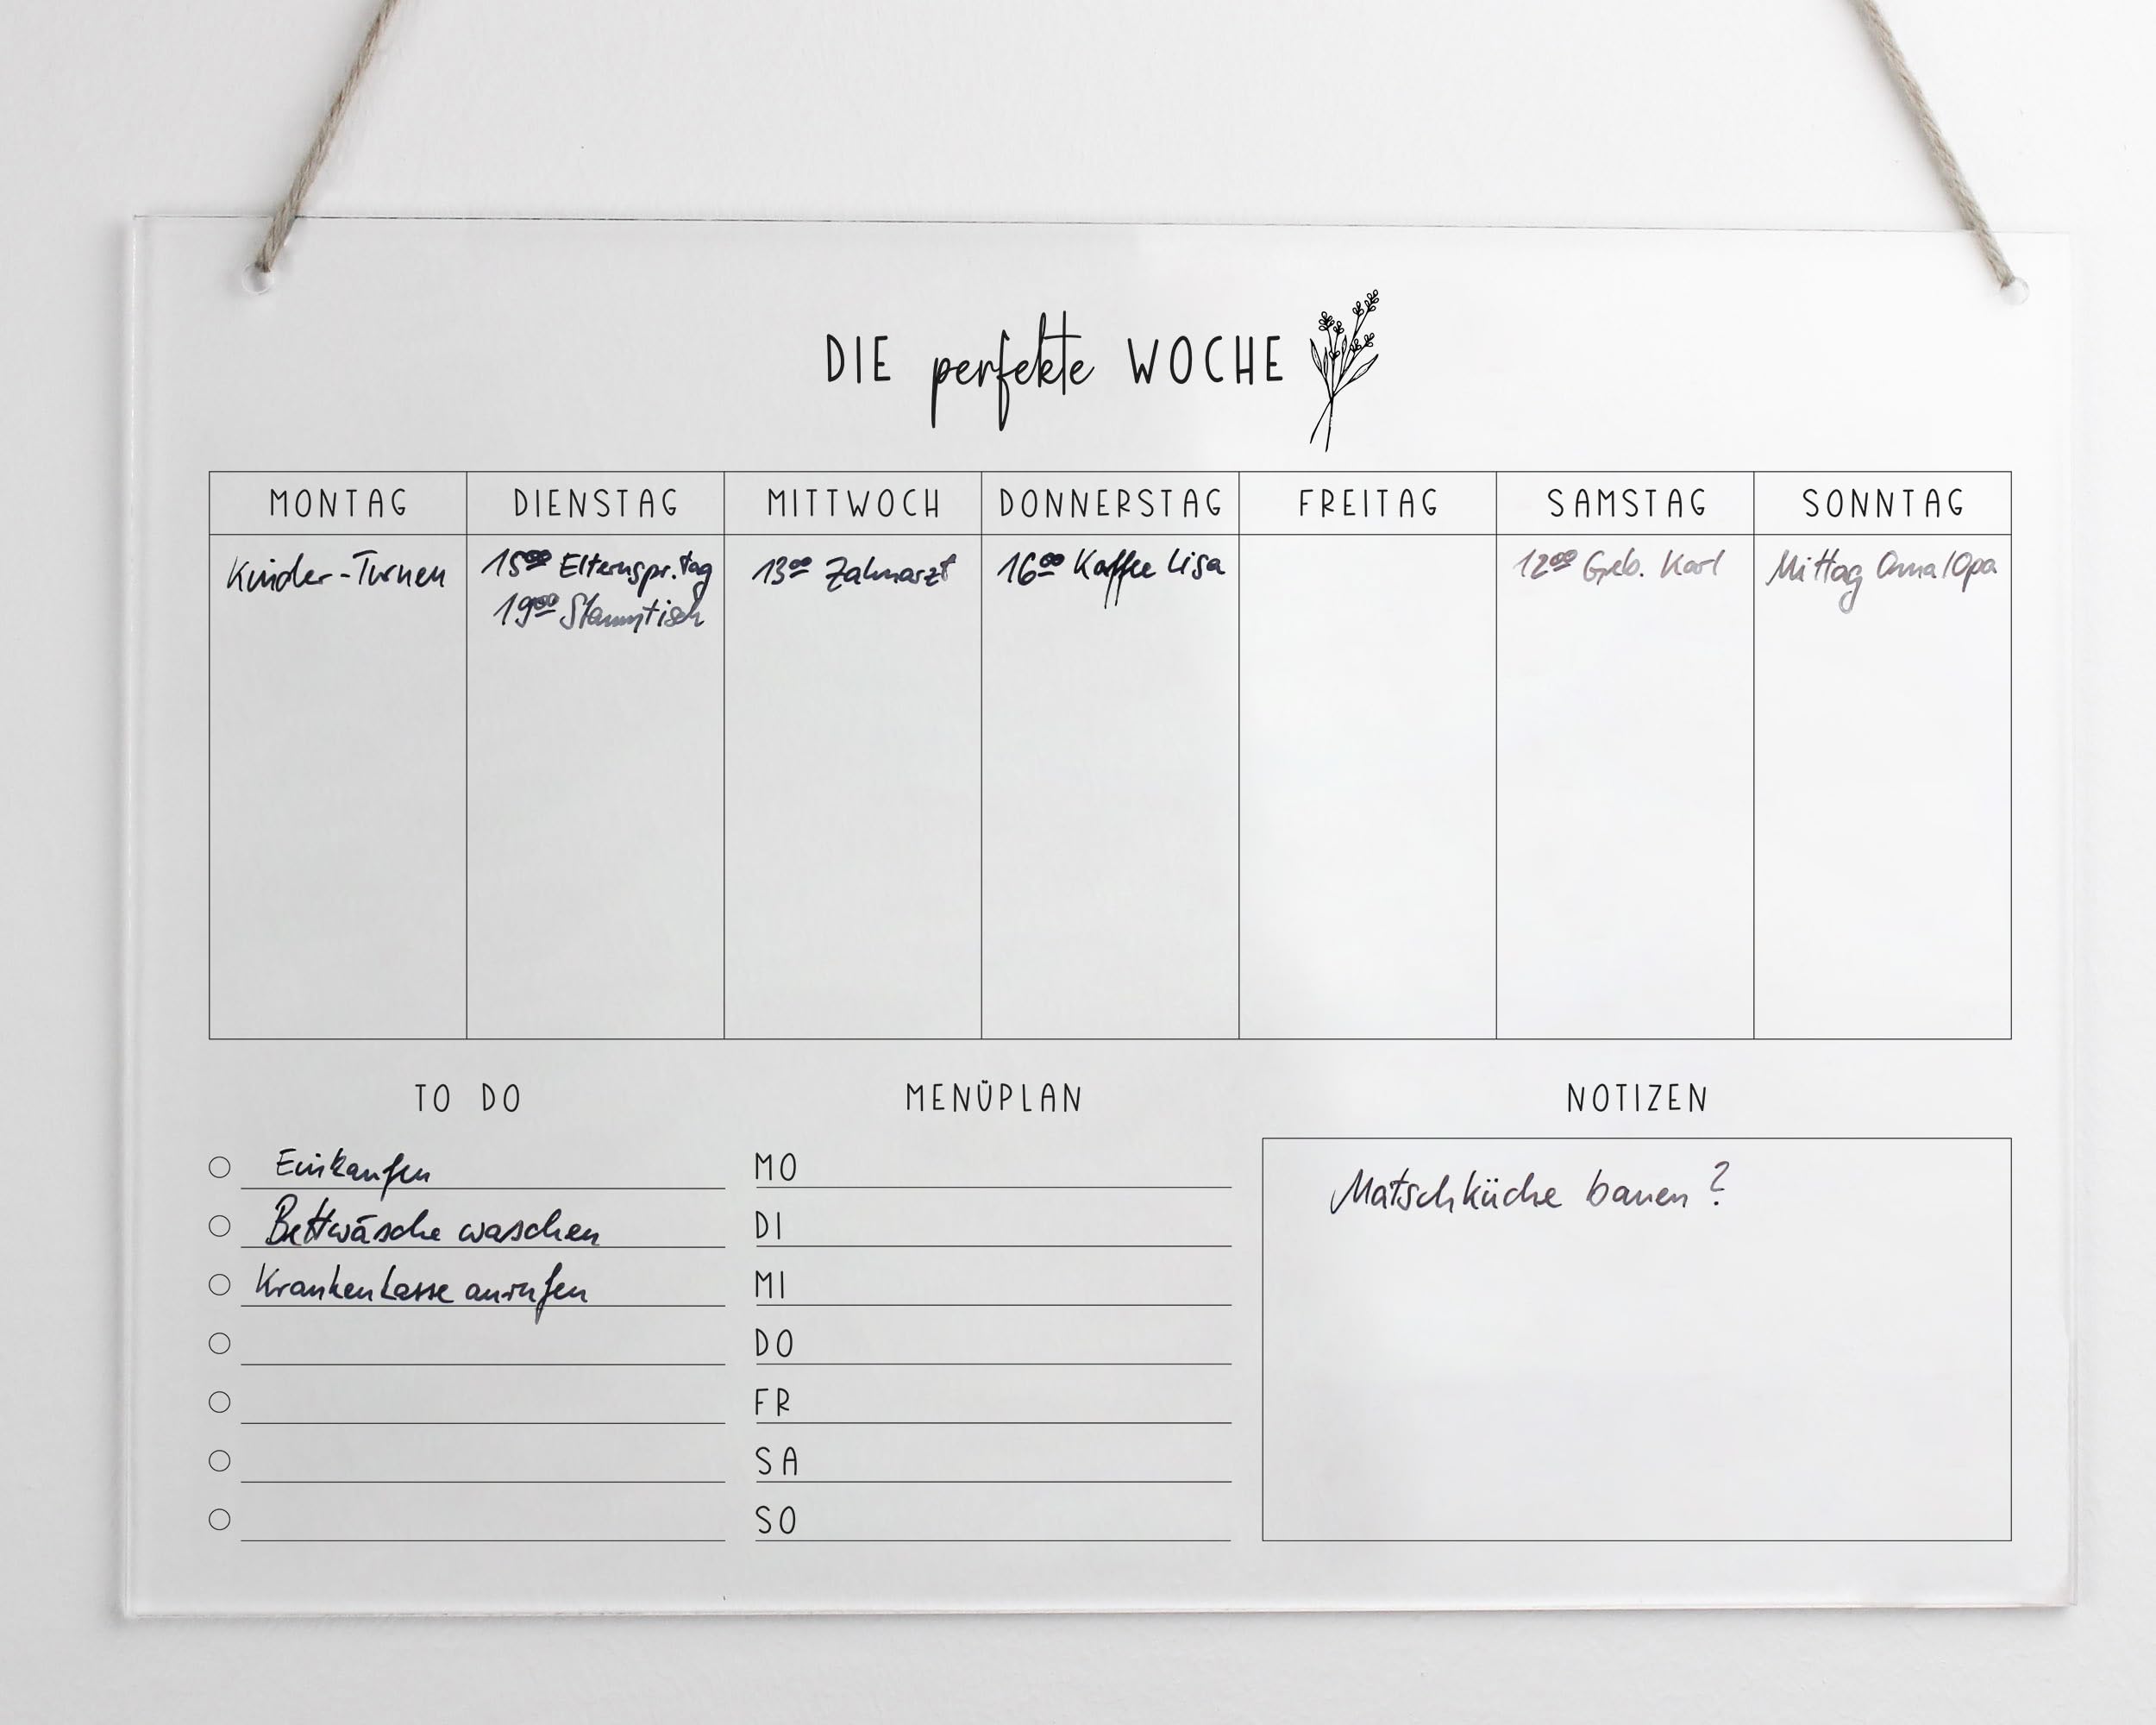 DIE perfekte WOCHE
MONTAG DIENSTAG MITTWOCH DONNERSTAG FREITAG SAMSTAG SONNTAG
Kinder-Turnen
15⁰⁰ Elternspr.tag
19⁰⁰ Stammtisch
13⁰⁰ Zahnarzt
16⁰⁰ Kaffee Lisa
12⁰⁰ Geb. Karl
Mittag Oma/Opa
TO DO
Einkaufen
Bettwäsche waschen
Krankenkasse anrufen
MENÜPLAN
MO
DI
MI
DO
FR
SA
SO
NOTIZEN
Matschküche bauen?